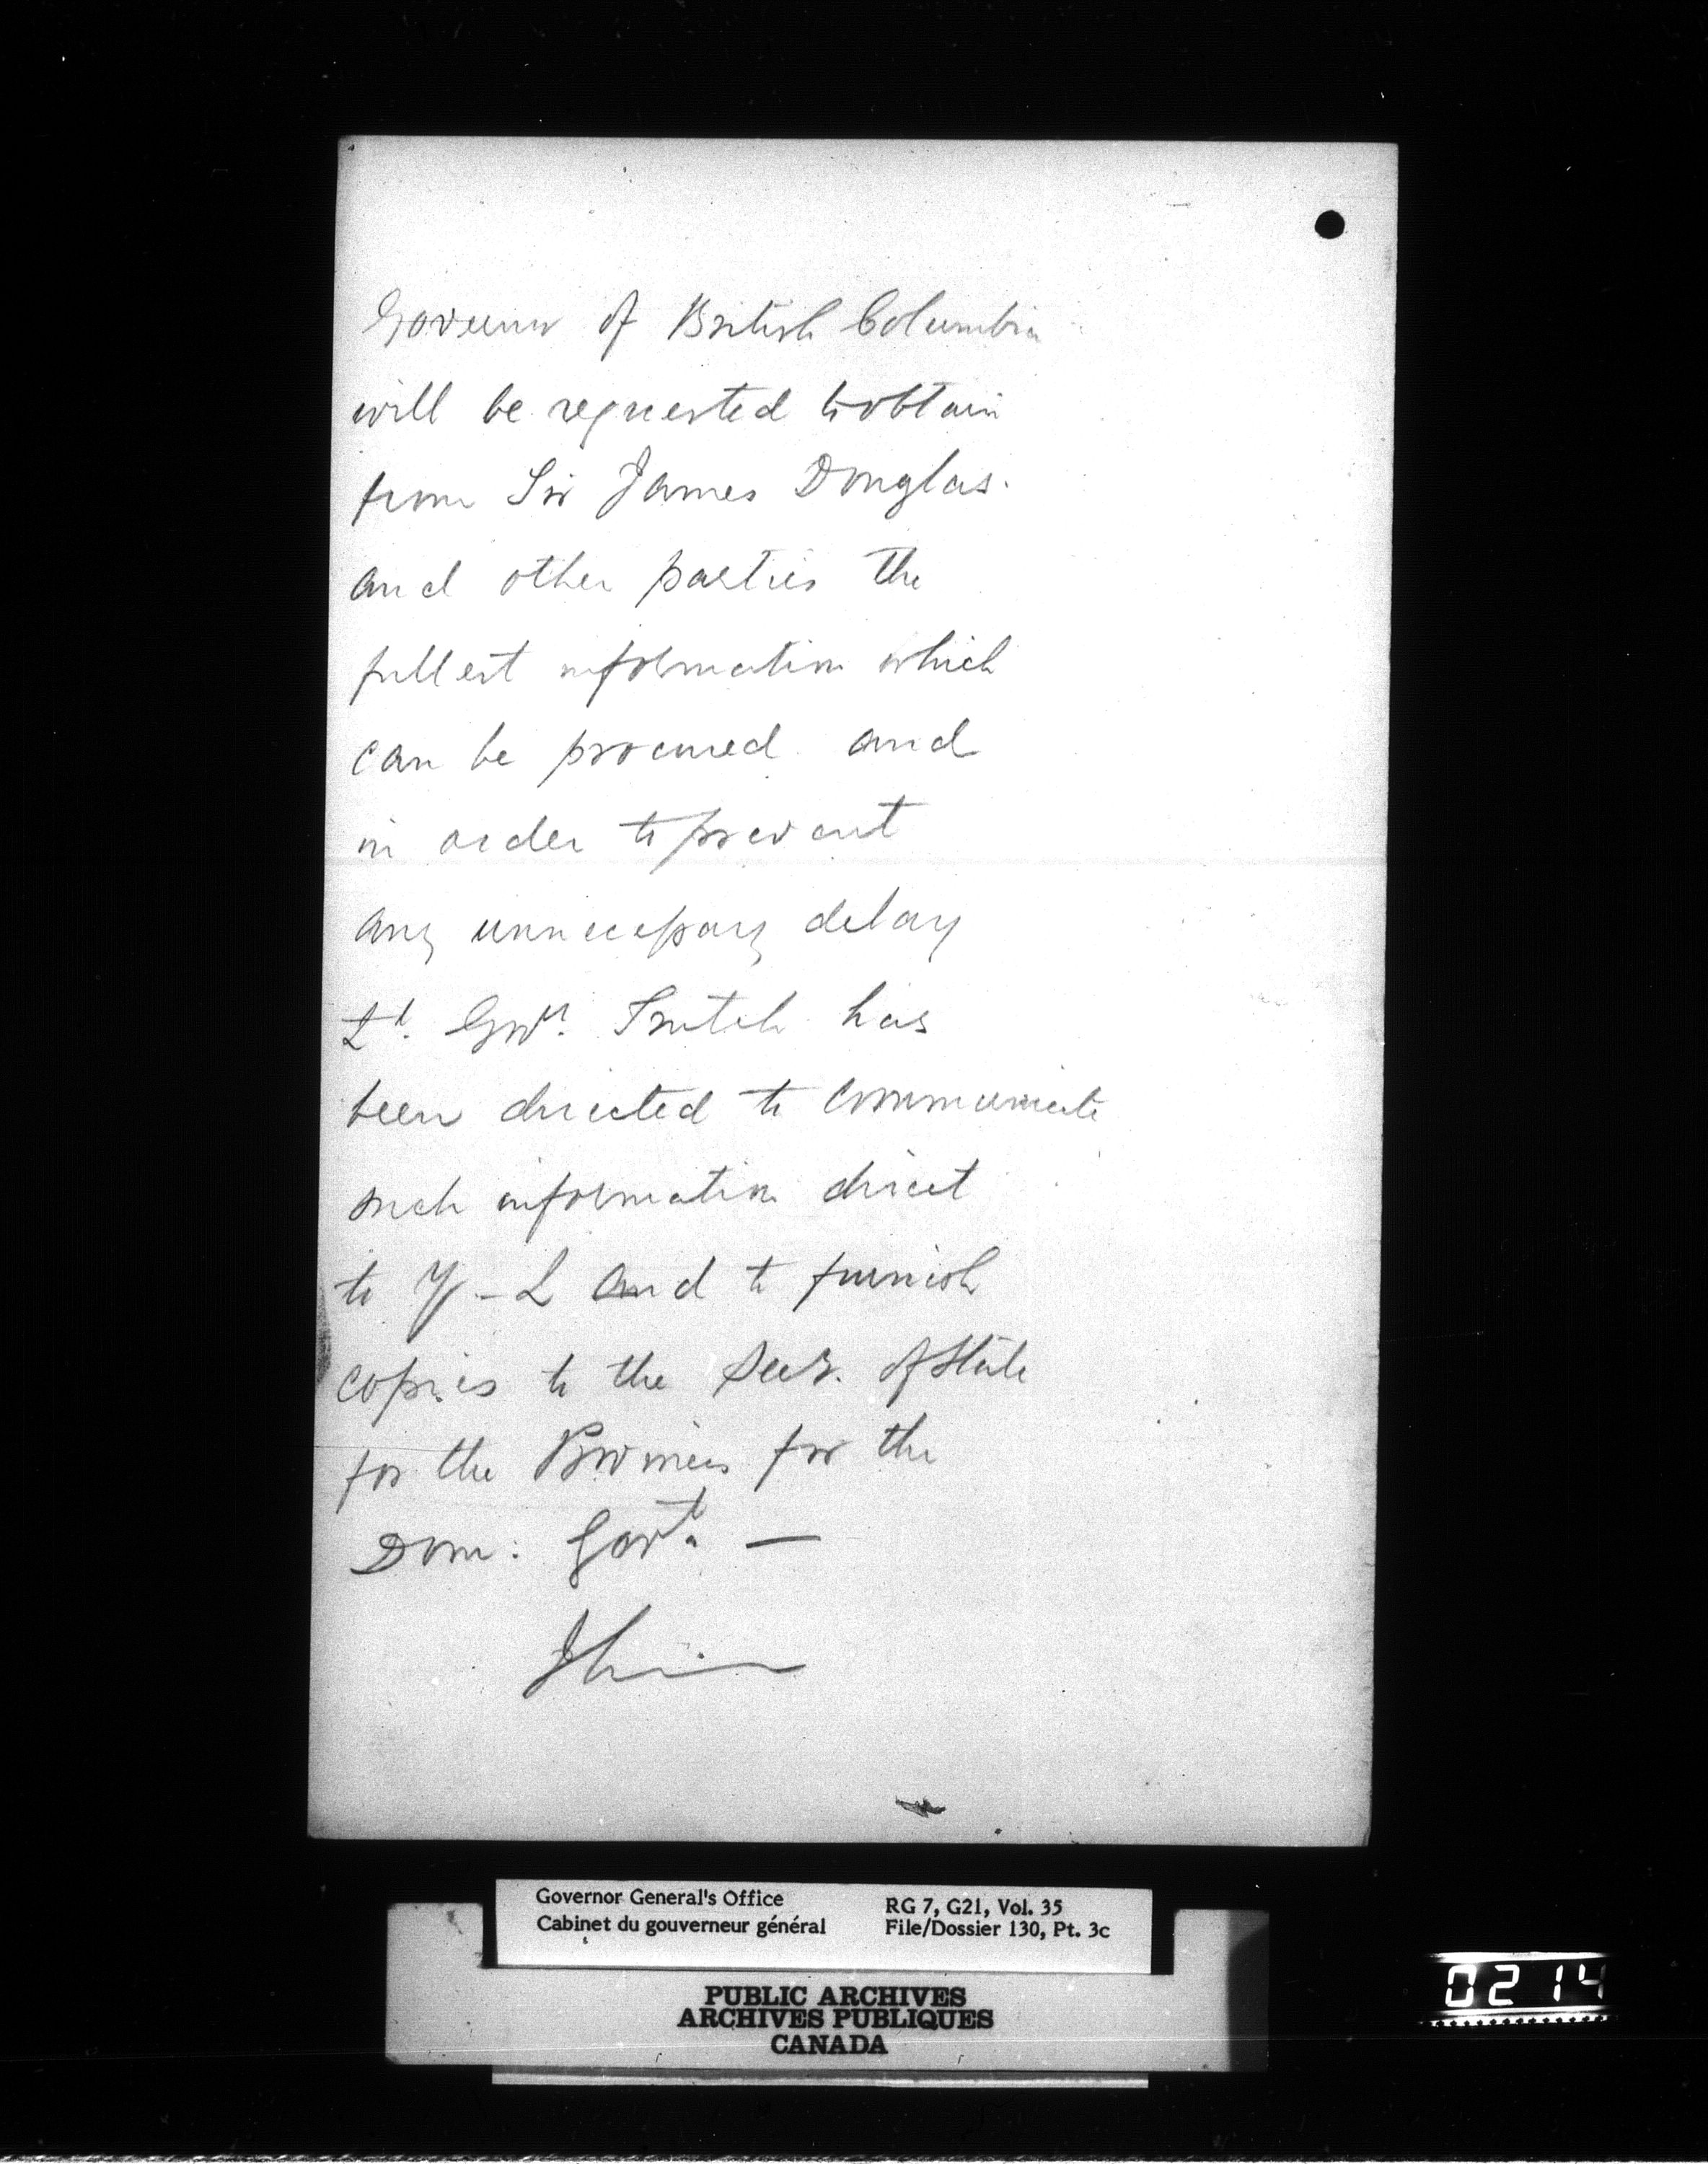 Governor of British Columbia
will be requested to obtain
from Sir James Douglas.
and other parties the
fullest information which
can be procured and
in order to prevent
any unnecessary delay
Lt. Govr. Trutch has
been directed to communicate
such information direct
to Y-L and to furnish
copies to the Secy. of State
for the Provinces for the
Dom: Govt. —
Governor General's Office
Cabinet du gouverneur général
RG 7, G21, Vol. 35
File/Dossier 130, Pt. 3c
PUBLIC ARCHIVES
ARCHIVES PUBLIQUES
CANADA
0214